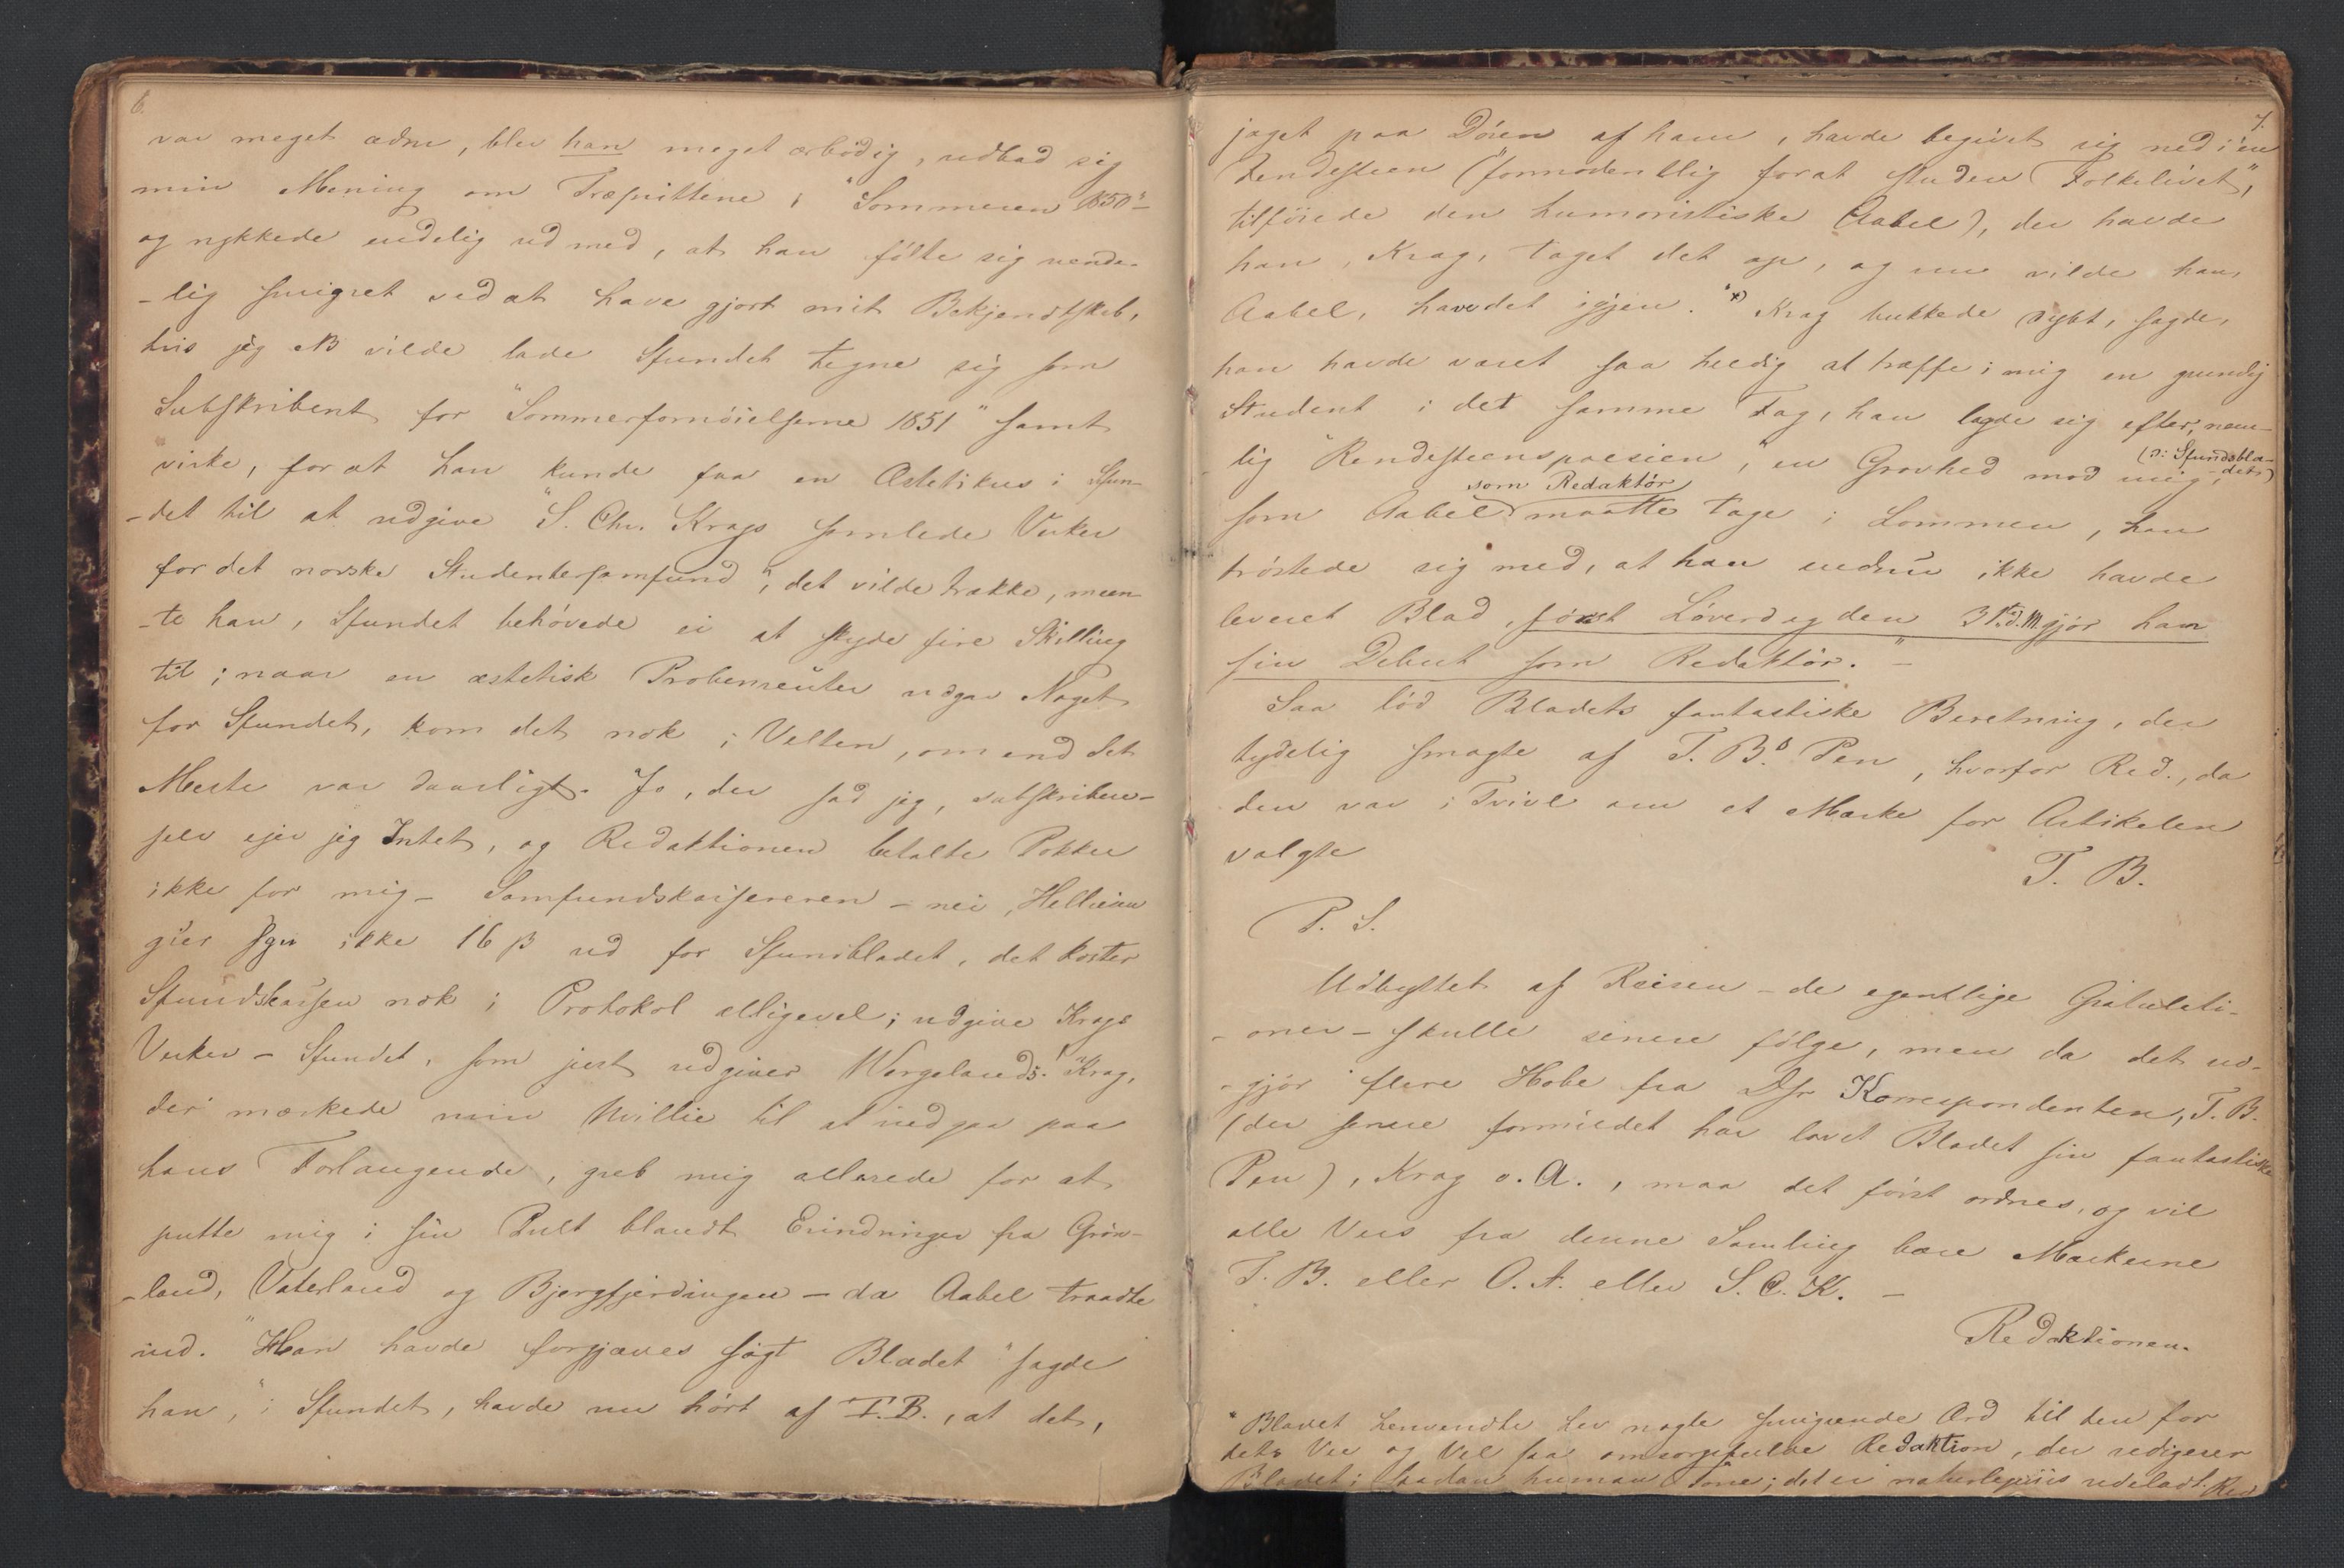 6.
var meget ædru, blev han meget ærbødig, udbad sig
min Mening om Træsnittene i "Sommeren 1850"
og rykkede endelig ud med, at han følte sig uende-
-lig smigret ved at have gjort mit Bekjendtskab,
hvis jeg NB vilde lade Sfundet tegne sig som
Subskribent for "Sommerfornøielserne 1851" samt
virke, for at han kunde faa en Æstetikus i Sfun-
-det til at udgive "S. Chr. Krags samlede Verker
for det norske Studentersamfund", det vilde trække, meen-
-te han, Sfundet behøvede ei at skyde fire Skilling
til; naar en æstetisk Probenreuter udgav Noget
for Sfundet, kom det nok i Velten, om end det
Meste var daarligt. Jo, der sad jeg, subskribere-
selv ejer jeg Intet, og Redaktionen betalte Pokker
ikke for mig - Samfundskassereren - nei, Hellesen
gier sgu ikke 16 ß ud for Sfunsbladet, det koster
Sfundskassen nok i Protokol alligevel; udgive Krags
Verker - Sfundet, som just udgiver Wergelands! Krag,
der mærkede min Uvillie til at indgaa paa
hans Forlangende, greb mig allerede for at
putte mig i sin Pult blandt Erindringer fra Grøn-
-land, Vaterland og Bjergfjerdingen - da Aabel traadte
ind. "Han havde forgjæves søgt Bladet" sagde
han, "i Sfundet, havde nu hørt af T.B., at det,
7.
jaget paa Døren af ham, havde begivet sig ned i en
Rendesteen (formodentlig for at studere "Folkelivet",
tilføiede den humoristiske Aabel), der havde
han, Krag, taget det op, og nu vilde han,
Aabel, have det igjen." *) Krag bukkede dybt, sagde,
han havde været saa heldig at træffe i mig en grundig
Student i det samme Fag, han lagde sig efter, nem-
lig "Rendesteenspoesien", en Grovhed mod mig, (ɔ: Sfundsbla-
-det)
som Aabel som Redaktør maatte tage i Lommen, han
trøstede sig med, at han endnu ikke havde
leveret Blad, først Løverdag den 31te d. M. gjør han
sin Debut som Redaktør." -
Saa lød Bladets fantastiske Beretning, der
tydelig smagte af T. B.s Pen, hvorfor Red., da
den var i Tvivl om et Mærke for Artikelen
valgte
T. B.
P. S.
Udbyttet af Reisen - de egentlige Gratulati-
-oner - skulle senere følge, men da det ud-
-gjør flere Hobe fra Dhr Korrespondenten, T. B.
(der senere formedet har lavet Bladet sin fantastiske
Pen), Krag o. A., maa det først ordnes, og vil
alle Vers fra denne Samling bære Mærkerne
T. B. eller O. A. eller S. C. K. -
Redaktionen.
* Bladet henvendte her nogle smigrende Ord til den for
dets Vee og Vel saa omsorgsfulde Redaktion, der redigerer
Bladet i saadan human Tone; det er naturligviis udeladt. Red